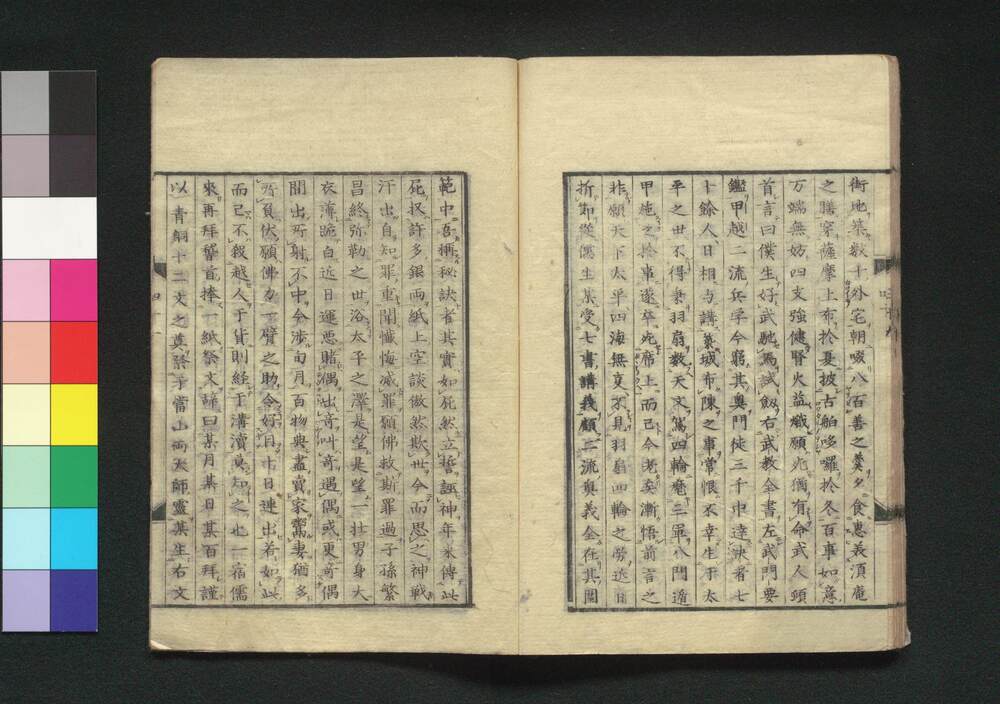 街地築數十外宅朝啜八百善之羹夕食惠義須庵
之膳穿薩摩上布於夏披古舶哆囉於冬百事如意
万端無妨四支強健腎火益熾願光猶有命武人頭
首言曰僕生好武馳馬試劔右武教全書左武門要
鑑甲越二流兵学今窮其奥門徒三千中達决者七
十餘人日相与講築城布陳之事常恨不幸生于太
平之世不得乗羽扇数天文駕四輪麾三軍八門遁
甲施之於事遂卒死席上而已今老矣漸悟前言之
非願天下太平四海無変不見羽扇四輪之労近日
折節從儒生某受七書講義顧二流奥義全在其關
範中吾稱秘訣者其實如死然立誓誣神年来傳此
死技許多銀両紙上空談徹然欺世今而思之神戦
汗出自知罪重聞懺悔滅罪願佛救斯罪過子孫繁
昌終弥勒之世浴太平之澤是望是望一壮男身大
衣薄跪白近日運悪賭偶出奇叫奇遇偶或更奇偶
間出所射不中今渉旬月百物典盡賣家鬻妻猶多
所負伏願佛為一臂之助令好目中日連出若如此
而已不敘越人于貨則経于溝瀆莫知之也一宿儒
來再拜稽首捧一紙祭文辞曰某月某日某百拜謹
以青銅十二文之奠祭于當山両大師靈某生右文